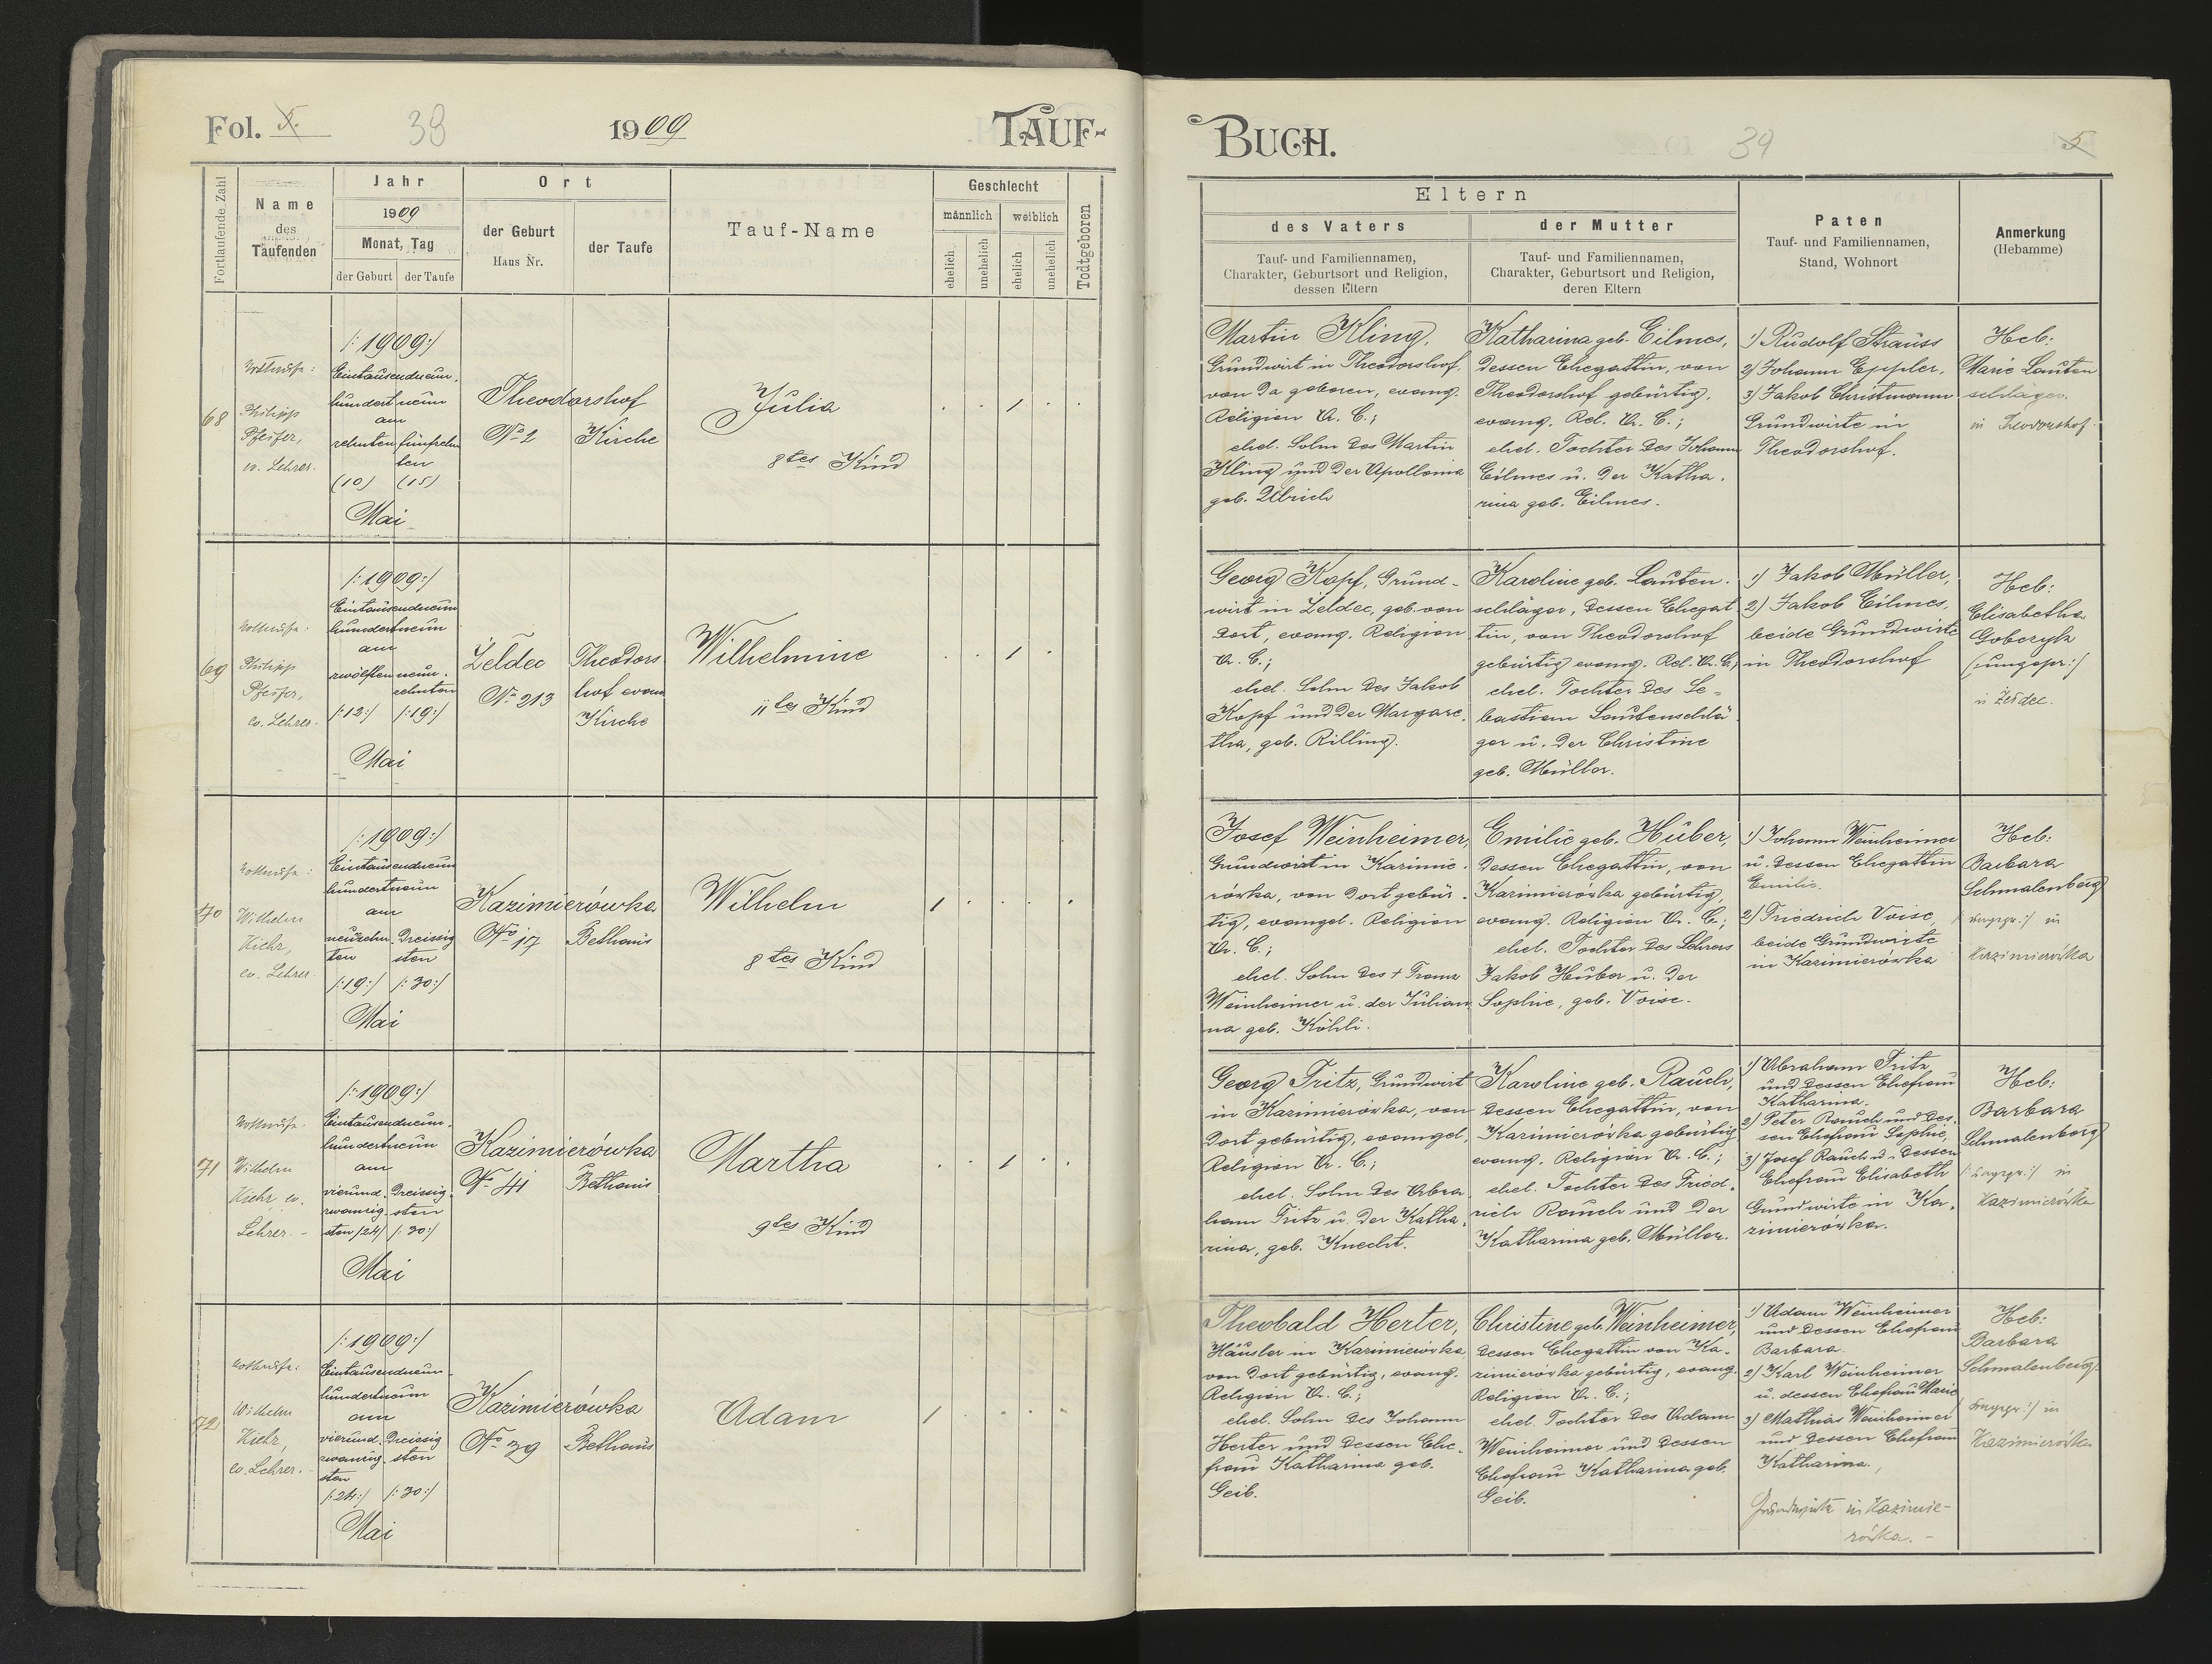 Fol. 5.
38
1909
TAUF-
Fortlaufende Zahl
Name
des
Taufenden
Jahr
1909
Monat, Tag
der Geburt
der Taufe
Ort
der Geburt
Haus Nr.
der Taufe
Tauf-Name
Geschlecht
männlich
weiblich
ehelich
unehelich
ehelich
unehelich
Todtgeboren
68
Philipp
Pfeifer,
ev. Lehrer.
/:1909:/
Eintausendneun-
hundert neun
am
zehnten fünfzehn
ten
(10) (15)
Mai
Theodorshof
No 2 Kirche
Julia
8tes Kind
1
69
Philipp
Pfeifer,
ev. Lehrer.
/:1909:/
Eintausendneun
hundertneun
am
zwölften neun-
zehnten
/:12:/ /:19:/
Mai
Żeldec
No 213
Theodors
hof evan
Kirche
Wilhelmine
11tes Kind
1
70
Wilhelm
Kiehr,
ev. Lehrer.
/:1909:/
Eintausendneun
hundertneun
am
neunzehn- Dreissig
ten sten
/:19:/ /:30:/
Mai
Kazimierówka
No 17 Bethaus
Wilhelm
8tes Kind
1
71
Wilhelm
Kiehr, ev.
Lehrer. -
/:1909:/
Eintausendneun-
hundertneun
am
vierund- Dreissig-
zwanzig- sten
sten /24/ /:30:/
Mai
Kazimierówka
No 41 Bethaus
Martha
9tes Kind
1
72
Wilhelm
Kiehr,
ev. Lehrer. -
/:1909:/
Eintausendneun-
hundertneun
am
vierund- Dreissig
zwanzig- sten
sten
/:24:/ /:30:/
Mai
Kazimierówka
No 39 Bethaus
Adam
1
BUCH.
39
5
Eltern
des Vaters
Tauf- und Familiennamen,
Charakter, Geburtsort und Religion,
dessen Eltern
der Mutter
Tauf- und Familiennamen,
Charakter, Geburtsort und Religion,
deren Eltern
Paten
Tauf- und Familiennamen,
Stand, Wohnort
Anmerkung
(Hebamme)
Martin Kling,
Grundwirt in Theodorshof,
von da geboren, evang.
Religion A. C.;
ehel. Sohn des Martin
Kling und der Apollonia
geb. Ulrich
Katharina geb. Eilmes,
dessen Ehegattin, von
Theodorshof gebürtig,
evang. Rel. A. C.;
ehel. Tochter des Johann
Eilmes u. der Katha-
rina geb. Eilmes.
1) Rudolf Strauss
2) Johann Eppler,
3) Jakob Christmann
Grundwirte in
Theodorshof.
Heb:
Marie Lauten
schläger,
in Theodorshof.
Georg Kopf, Grund-
wirt in Żeldec, geb. von
dort, evang. Religion
A. C.;
ehel. Sohn des Jakob
Kopf und der Margare-
tha, geb. Rilling.
Karoline geb. Lauten-
schläger, dessen Ehegat
tin, von Theodorshof
gebürtig evang. Rel. A. C.;
ehel. Tochter des Se-
bastian Lautenschlä-
ger u. der Christine
geb. Müller.
1) Jakob Müller,
2) Jakob Eilmes,
beide Grundwirte
in Theodorshof
Heb:
Elisabetha
(:ungepr:/
in Żeldec.
Josef Weinheimer,
Grundwirt in Kazimie-
rówka, von dort gebür-
tig, evangel. Religion
A. C.;
ehel. Sohn des + Franz
Weinheimer u. der Julian-
na geb. Köhli.
Emilie geb. Huber,
dessen Ehegattin, von
Kazimierówka gebürtig,
evang. Religion A. C.;
ehel. Tochter des Lehrers
Jakob Huber u. der
Sophie, geb. Voise.
1) Johann Weinheimer
u. dessen Ehegattin
Emilie.
2) Friedrich Voise,
beide Grundwirte
in Kazimierówka
Heb:
Barbara
Schmalenberg
/:ungepr:/ in
Kazimierówka
Georg Fritz, Grundwirt
in Kazimierówka, von
dort gebürtig, evangel.
Religion A. C.;
ehel. Sohn des Abra-
ham Fritz u. der Katha-
rina, geb. Knecht.
Karoline geb. Rauch,
dessen Ehegattin, von
Kazimierówka gebürtig
evang. Religion A. C.;
ehel. Tochter des Fried-
rich Rauch und der
Katharina geb. Müller.
1) Abraham Fritz
und dessen Ehefrau
Katharina.
2) Peter Rauch und des-
sen Ehefrau Sophie,
3) Josef Rauch u. dessen
Ehefrau Elisabeth
Grundwirte in Ka-
zimierówka.
Heb:
Barbara
Schmalenberg
/:ungepr:/ in
Kazimierówka
Theobald Herter,
Häusler in Kazimierówka,
von dort gebürtig, evang.
Religion A. C.;
ehel. Sohn des Johann
Herter und dessen Ehe-
frau Katharina geb.
Geib.
Christine geb. Weinheimer,
dessen Ehegattin von Ka-
zimierówka gebürtig, evang.
Religion A. C.;
ehel. Tochter des Adam
Weinheimer und dessen
Ehefrau Katharina geb.
Geib.
1) Adam Weinheimer
und dessen Ehefrau
Barbara.
2) Karl Weinheimer
u. dessen Ehefrau Marie
3) Mathias Weinheimer
und dessen Ehefrau
Katharina.,
Grundwirte in Kazimie-
rówka. -
Heb:
Barbara
Schmalenberg.
/:ungepr:/ in
Kazimierówka